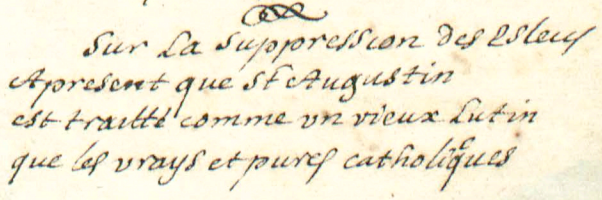 Sur La Suppression des Esleus
Apresent que St Augustin
est traitté comme un vieux Lutin
que les vrays et pures catholiques